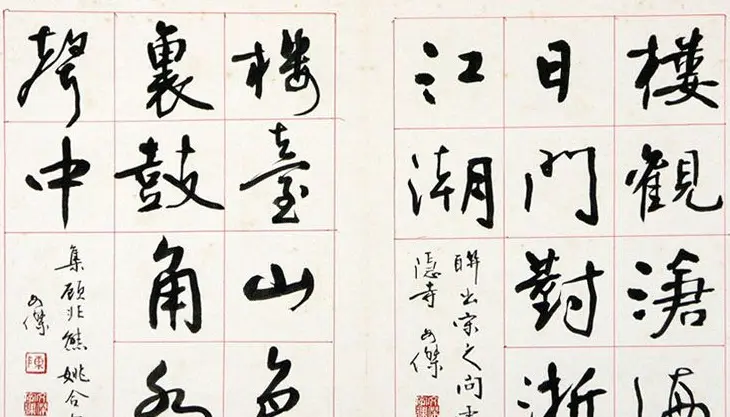 樓觀滄海
日門對浙
江潮
聯出宋之問
隱寺
楼臺山色
裏鼓角水
聲中
集顧非熊姚合